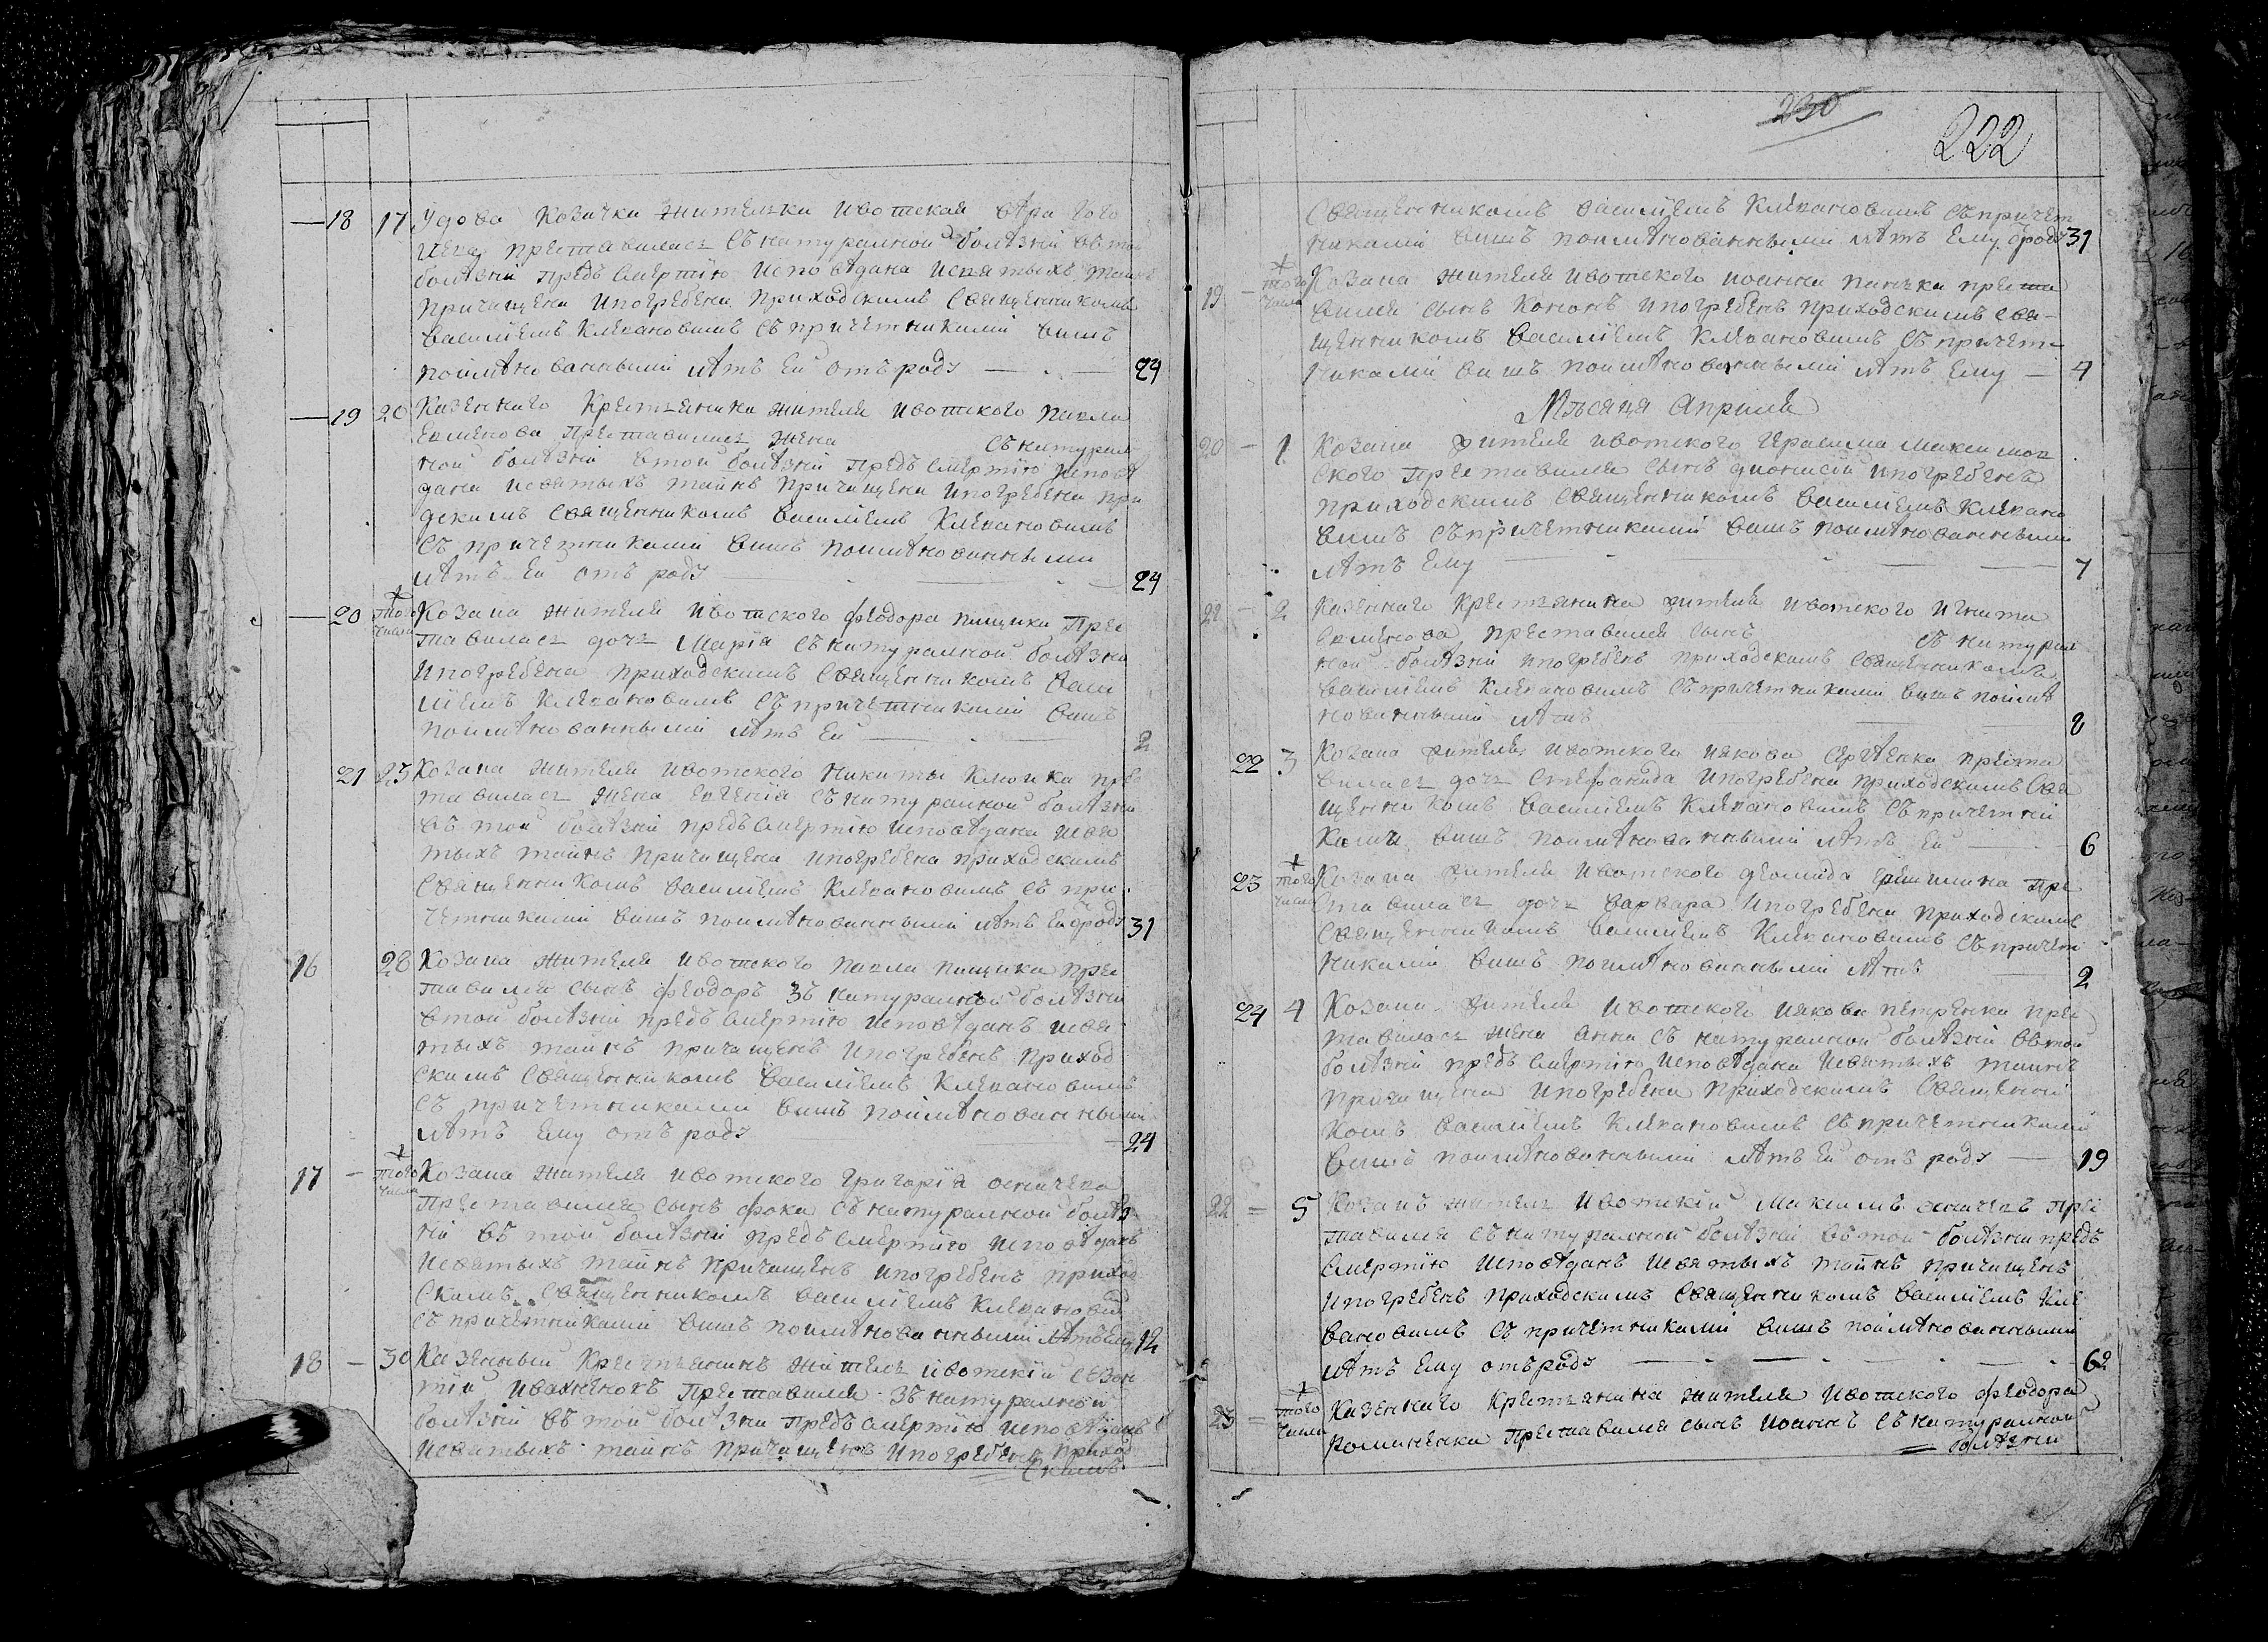 18 17 Удова козачка жителка ивотская вѣра гого
чева преставилась съ натуралной болѣзни въ той
болѣзни предъ смертїю исповѣдана исвятыхъ таинъ
причащена ипогребена приходскимъ священникомъ
василїемъ клевановимъ съ причетниками вишъ
поимѧнованными лѣтъ ей отъ роду 24
19 20 Казенного крестьянина жителя ивотского павла
преставилась жена съ натурал
ной болѣзни втой болѣзни предъ смертїю исповѣ
дана исвятыхъ таинъ причащена ипогребена при
дскимъ священникомъ василїемъ клевановимъ
съ причетниками вишъ поимѣнованными
лѣтъ ей отъ роду 24
20 того числа Козака жителя ивотского феодора пищика пре
тавилась дочь марїя съ натуралной болѣзни
ипогребена приходскимъ священникомъ васи
лїемъ клевановимъ съ причетниками вишъ
поимѣнованными лѣтъ ей 2
21 23 Козака жителя ивотского никиты преc
тавилась жена евгенїя съ натуралной болѣзни
въ той болѣзни предъ смертїю исповѣдана исвя
тыхъ таинъ причащена ипогребена приходскимъ
священникомъ василїемъ клевановимъ съ при
четниками вишъ поимѣнованными лѣтъ ей ѿроду 31
16 28 Козака жителя ивотского павла пищика прес
тавился сынъ феодоръ зъ натуралной болѣзни
втой болѣзни предъ смертїю исповѣданъ исвя
тыхъ таинъ причащенъ ипогребенъ приход
скимъ священникомъ василїемъ клевановимъ
съ причетниками вишъ поимѣнованными
лѣтъ ему отъ роду 24
17 того числа Козака жителя ивотского григорїя
преставился сынъ фока съ натуралной болѣз
ни въ той болѣзни предъ смертїю исповѣданъ
исвятыхъ таинъ причащенъ ипогребенъ приход
скимъ священникомъ василїемъ клевановим
съ причетниками вишъ поимѣнованными лѣтъ ему 12
18 30 Казенный крестьянинъ жителъ ивотскїй
ивахненокъ преставился зъ натуралной
болѣзни въ той болѣзни предъ смертїю исповѣданъ
исвятыхъ таинъ причащенъ ипогребенъ приход
скимъ
230
222
священникомъ василїемъ клевановимъ съ причет
никами вишъ поимѣнованными лѣтъ ему ѿроду 31
19 того числа Козака жителя ивотского иоанна преста
вился сынъ кононъ ипогребенъ приходскимъ свя-
щенникомъ василїемъ клевановимъ съ причет-
никами вишъ поимѣнованными лѣтъ ему 4
Мѣсяца Априля
20 1 Козака жителя ивотского
ского преставился сынъ дионисїй ипогребенъ
приходскимъ священникомъ василїемъ клевано
вимъ съ причетниками вишъ поимѣнованными
лѣтъ ему 7
21 2 Казенного крестьянина жителя ивотского игната
преставился сынъ съ натурал
ной болѣзни ипогребенъ приходскимъ священникомъ
василїемъ клевановимъ съ причетниками вишъ поимѣ
нованными лѣтъ 8
22 3 Козака жителя ивотского иякова сергѣенка преста
вилась дочь стефанида ипогребена приходскимъ свя
щенникомъ василїемъ клевановимъ съ причетни
ками вишъ поимѣнованными лѣтъ ей 6
23 того числа Козака жителя ивотского пре
ставилась дочь варвара ипогребена приходскимъ
священникомъ василїемъ клевановимъ съ причет
никами вишъ поимѣнованными лѣтъ 2
24 4 Козака жителя ивотского иякова петренка прес
тавилась жена анна съ натуралной болѣзни въ той
болѣзни предъ смертїю исповѣдана исвятыхъ таинъ
причащена ипогребена приходскимъ священни
комъ василїемъ клевановимъ съ причетниками
вишъ поимѣнованными лѣтъ ей отъ роду 19
22 5 Козакъ жителъ ивотскїй максимъ прес
тавился съ натуралной болѣзни въ той болѣзни предъ
смертїю исповѣданъ исвятыхъ таинъ причащенъ
ипогребенъ приходскимъ священникомъ василїемъ кле
вановимъ съ причетниками вишъ поимѣнованными
лѣтъ ему отъ роду 62
23 того числа Казенного крестьянина жителя ивотского феодора
романенка преставился сынъ иоаннъ съ натуралной
болѣзни